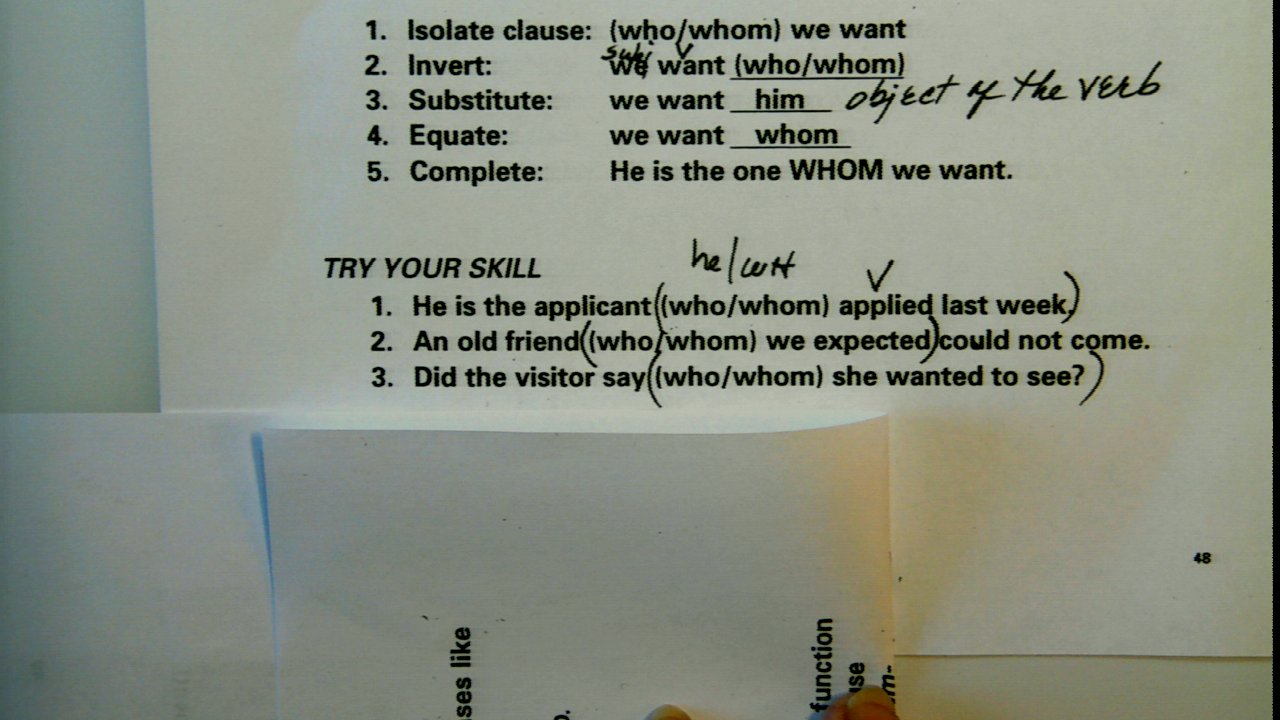 1. Isolate clause: (who/whom) we want
subj v
2. Invert: we want (who/whom)
3. Substitute: we want him object of the verb
4. Equate: we want whom
5. Complete: He is the one WHOM we want.
he/
TRY YOUR SKILL
1. He is the applicant ((who/whom) applied last week.)
2. An old friend ((who/whom) we expected) could not come.
3. Did the visitor say ((who/whom) she wanted to see?)
48
ses like
function